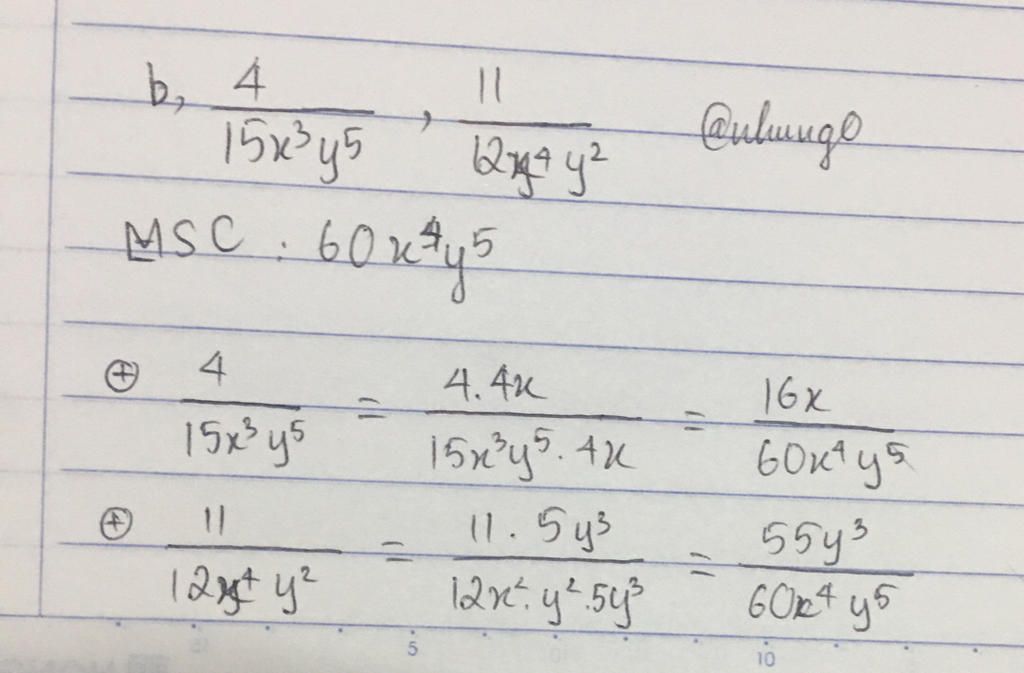 b, 4/(15x³y⁵) , 11/(12x⁴y²) @nhungo
MSC : 60x⁴y⁵
⊕ 4/(15x³y⁵) = (4.4x)/(15x³y⁵.4x) = 16x/(60x⁴y⁵)
⊕ 11/(12x⁴y²) = (11.5y³)/(12x⁴.y².5y³) = 55y³/(60x⁴y⁵)
5 10